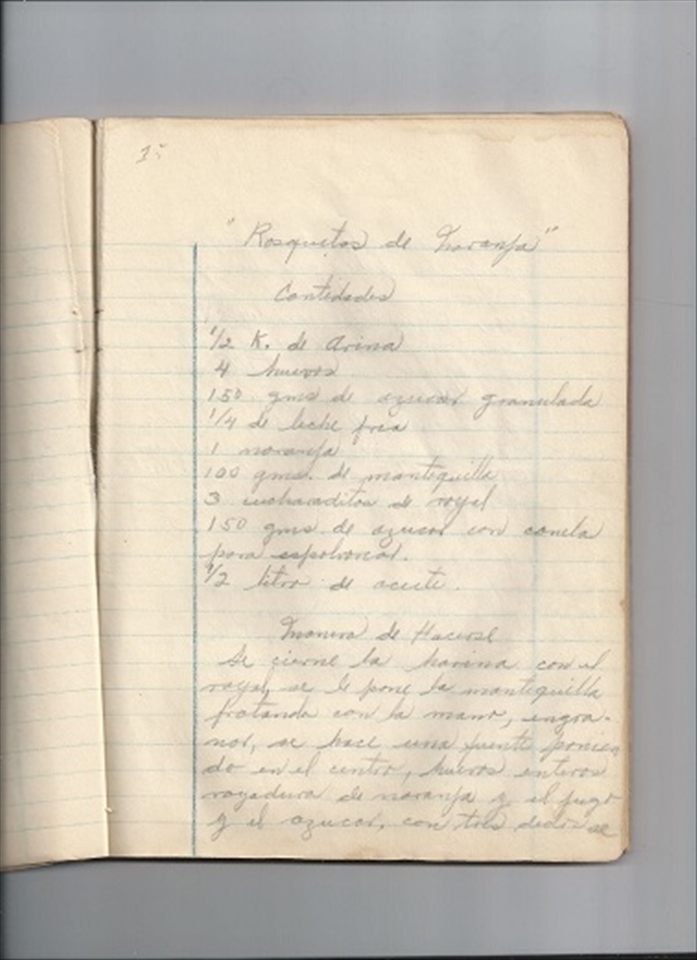 1-
"Rosquetas de Naranja"
Cantidades
1/2 K. de Arina
4 huevos
150 gms de azucar granulada
1/4 de leche fria
1 naranja
100 gms. de mantequilla
3 cucharaditas de royal
150 gms. de azucar con canela
para espolvorear.
1/2 litro de aceite.
Manera de Hacerse
Se cierne la harina con el
royal, se le pone la mantequilla
frotando con la mano, engra-
nar, se hace una fuente ponien
do en el centro, huevos enteros
rayadura de naranja y el jugo
y el azucar, con tres dedos se